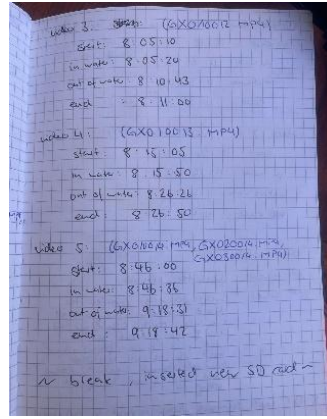 video 3: start: (GX010012.MP4)
start: 8:05:10
in water: 8:05:20
out of water: 8:10:43
end : 8:11:00
video 4: (GX010013.MP4)
start: 8:15:05
in water: 8:15:50
out of water: 8:26:26
end: 8:26:50
video 5: (GX010014.MP4, GX020014.MP4,
GX030014.MP4)
start: 8:46:00
in water: 8:46:36
out of water: 9:18:31
end: 9:18:42
~ break, inserted new SD card ~